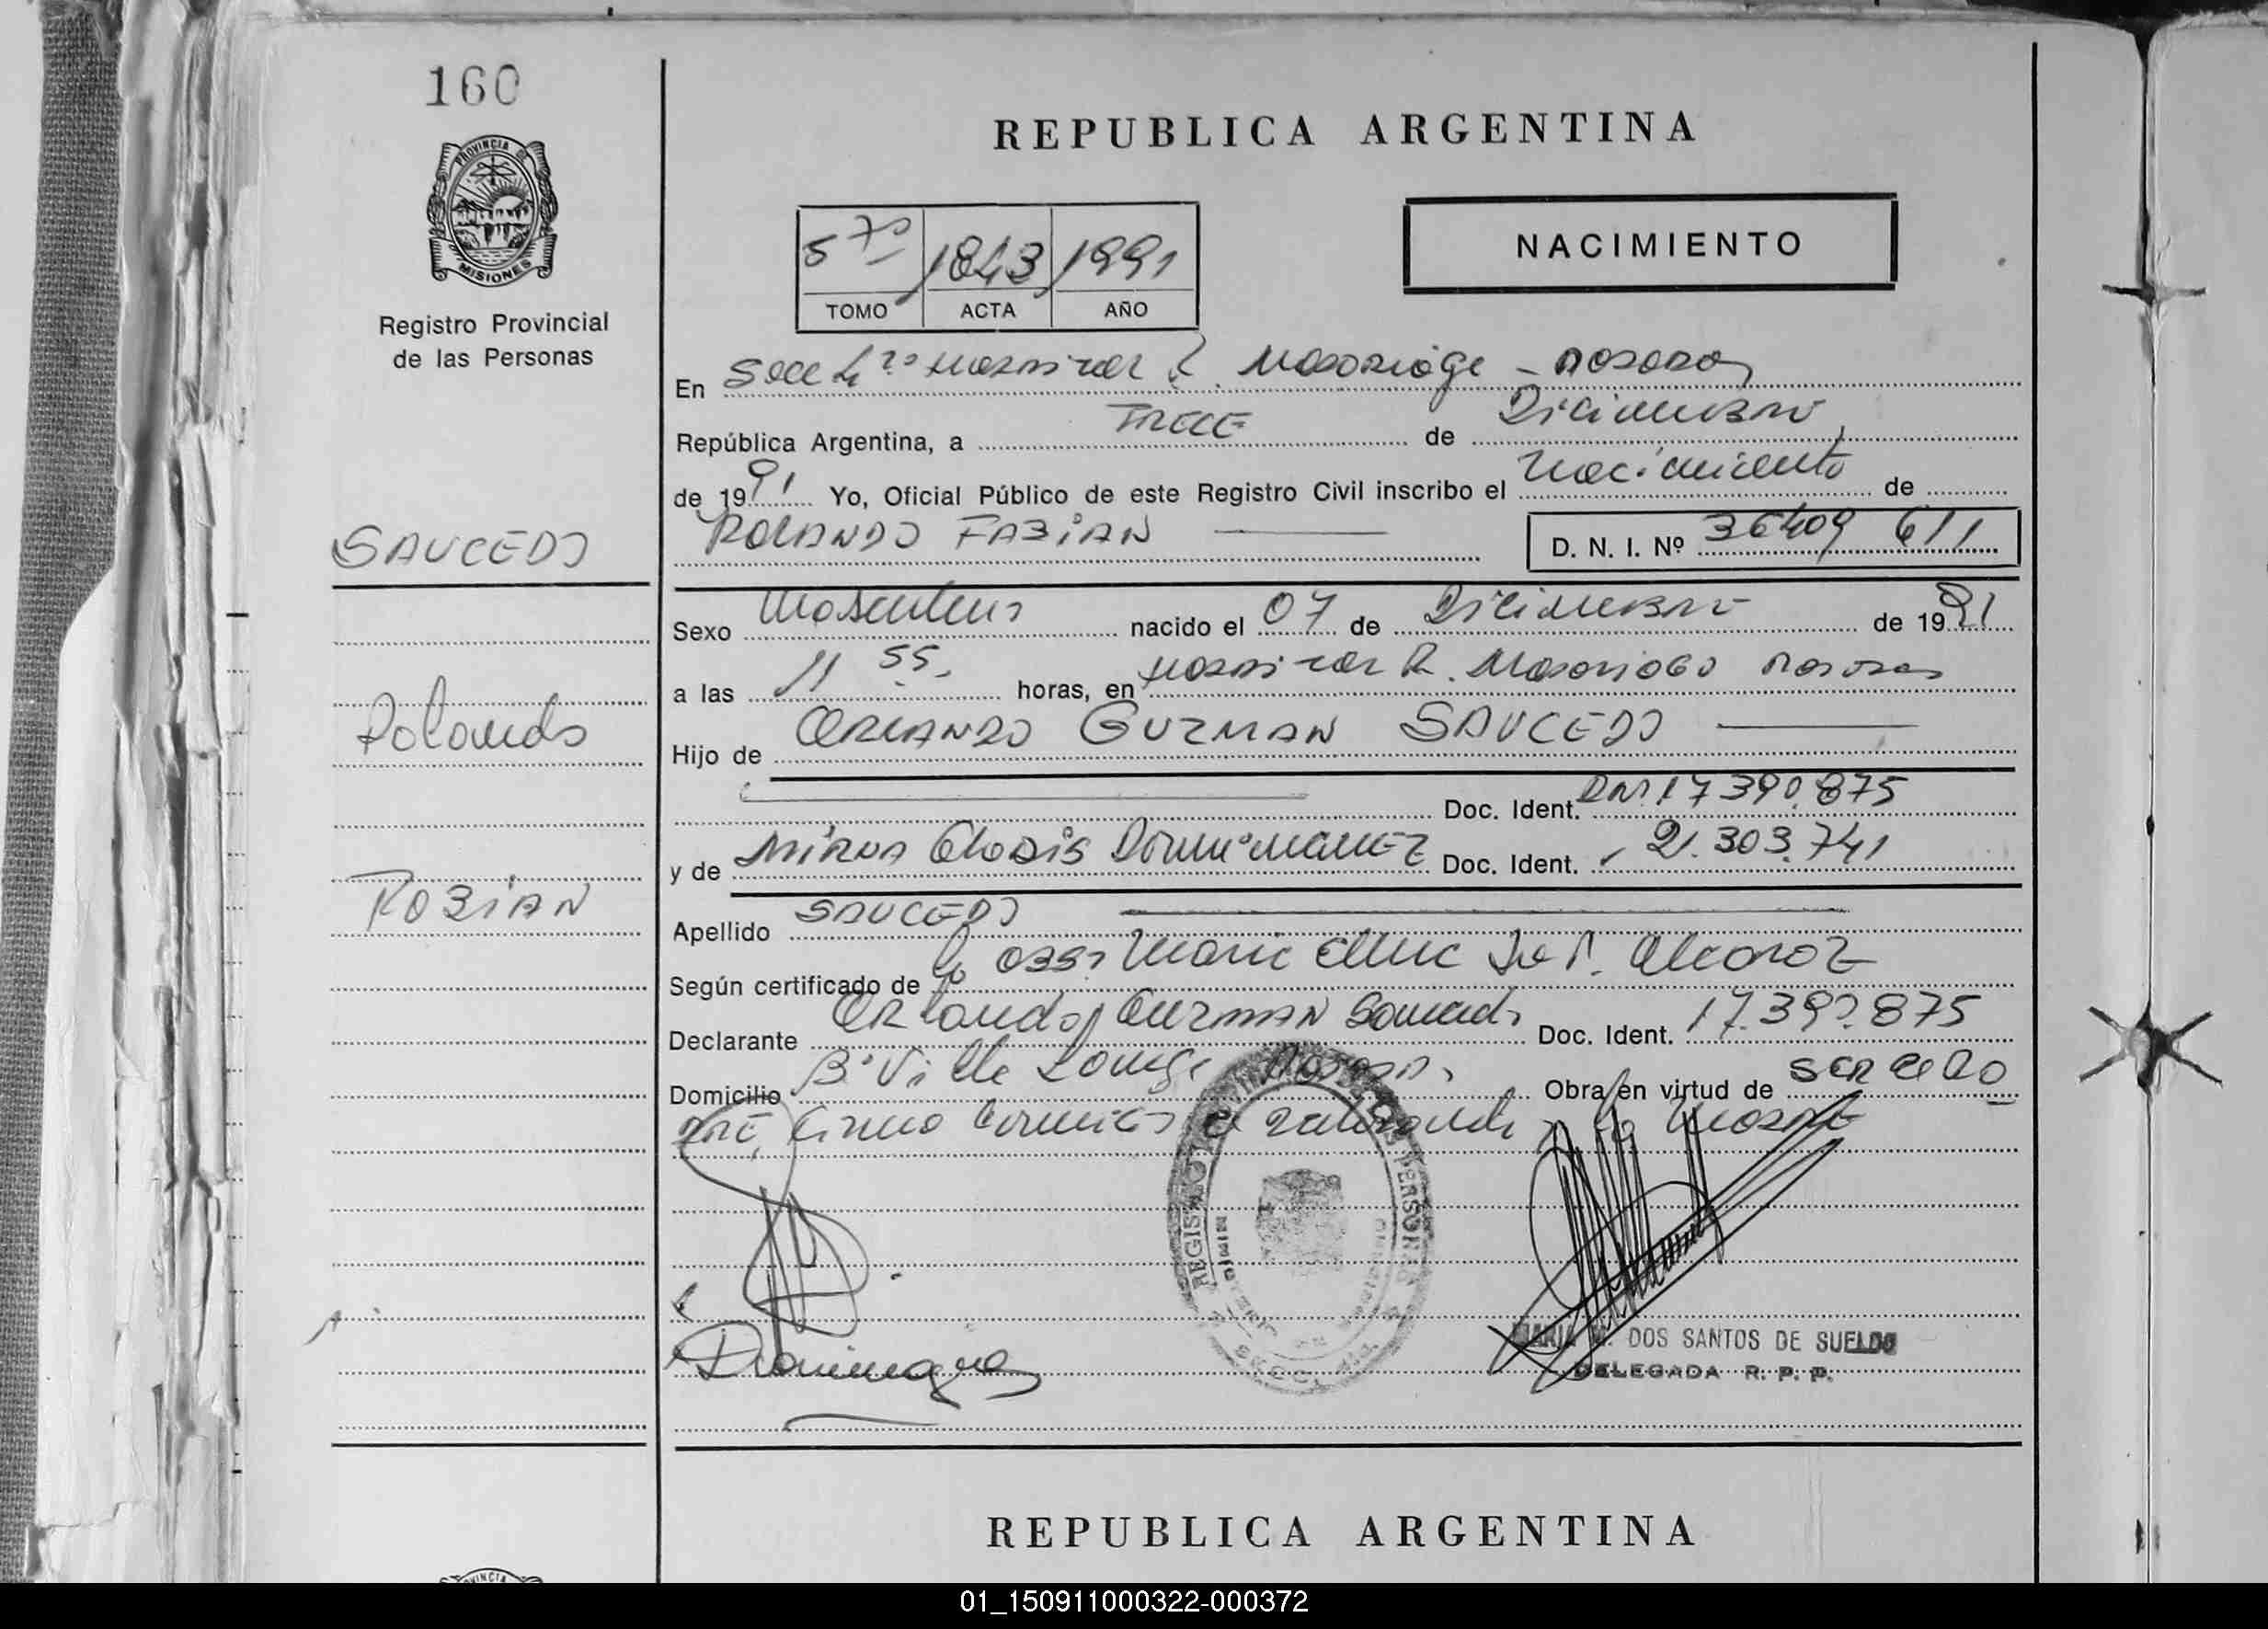 160
PROVINCIA DE
MISIONES
Registro Provincial
de las Personas
SAUCEDO
Rolando
FABIAN
REPUBLICA ARGENTINA
NACIMIENTO
5to 1843 1991
TOMO ACTA AÑO
En Secc Hospital R. Madariaga - Posadas
República Argentina, a TRECE de Diciembre
de 1991 Yo, Oficial Público de este Registro Civil inscribo el Nacimiento de
ROLANDO FABIAN D. N. I. Nº 36409 611
Sexo Masculino nacido el 07 de Diciembre de 1991
a las 11 55 horas, en Hospital R. Madariaga Posadas
Hijo de ORLANDO GUZMAN SAUCEDO
Doc. Ident. DNI 17 390.875
y de Mirna Gladis Doc. Ident. 21.303.741
Apellido SAUCEDO
Según certificado de la Obst. Maria
Declarante Orlando Guzman Saucedo Doc. Ident. 17.390.875
Domicilio B° Villa Posadas Obra en virtud de
firma la madre
REGISTRO PERSONAS
Dominguez
MARIA DOS SANTOS DE SUELDO
DELEGADA R. P. P.
REPUBLICA ARGENTINA
01_150911000322-000372